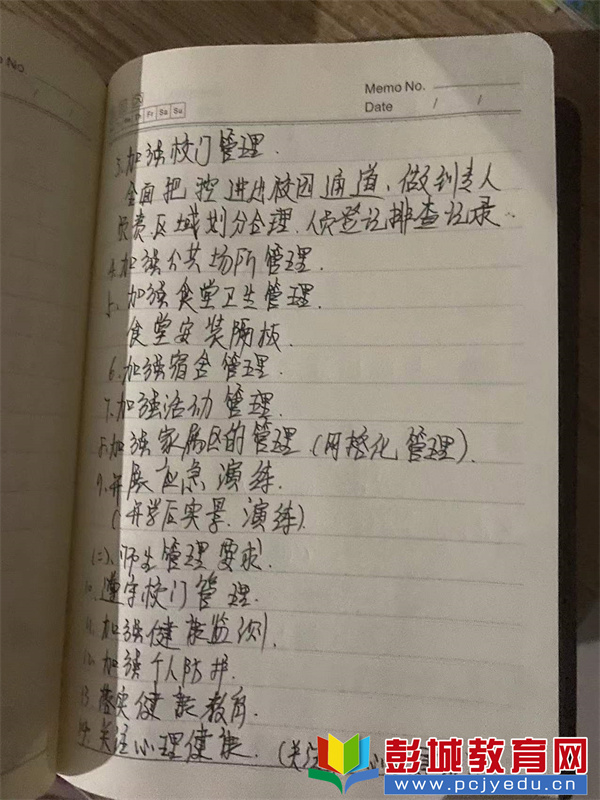 No
Memo No.
Fr Sa Su
Date / /
3.加强校门管理.
全面把控进出校园通道、做到专人
负责.区域划分合理.人员登记排查记录.
4.加强公共场所管理.
5.加强食堂卫生管理.
食堂安装隔板.
6.加强宿舍管理.
7.加强活动管理.
8.加强家属区的管理(网格化管理).
9.开展应急演练.
(开学后实景.演练).
(二).师生管理要求.
10.遵守校门管理.
11.加强健康监测.
12.加强个人防护.
13.落实健康教育.
14.关注心理健康.(关注心
彭城教育网
www.pcjyedu.com